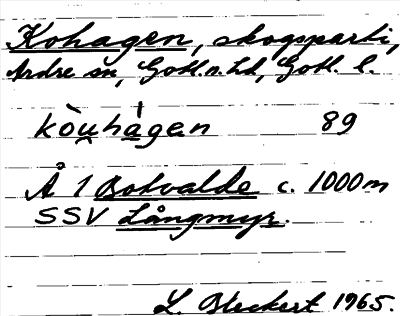 Kohagen, skogsparti,
Ardre sn, Gotl. n. hd, Gotl. l.
kòu̯hágen 89
Å 1 Botvalde c. 1000 m
SSV Långmyr.
L. Bleckert 1965.